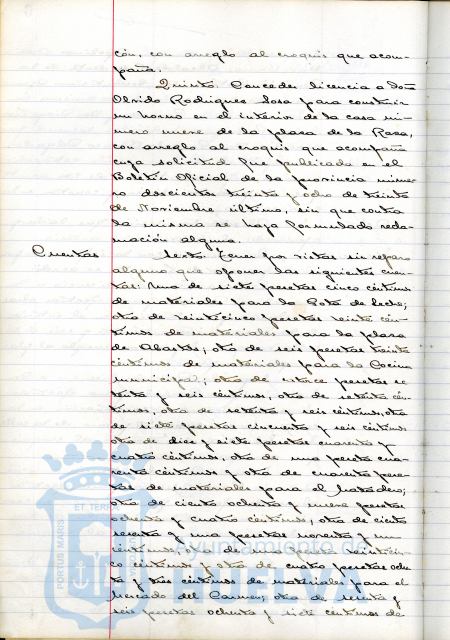 ción, con arreglo al croquis que acom-
paña.
Quinto. Conceder licencia a doña
Olvido Rodriguez Sosa para construir
un horno en el interior de la casa nú-
mero nueve de la plaza de la Rasa,
con arreglo al croquis que acompaña
cuya solicitud fue publicada en el
Boletin Oficial de la provincia núme-
ro doscientos treinta y ocho de treinta
de Noviembre último, sin que contra
la misma se haya formulado recla-
mación alguna.
Cuentas
Sexto. Tener por vistas sin reparo
alguno que oponer las siguientes cuen-
tas: Una de siete pesetas cinco céntimos
de materiales para la Gota de leche;
otra de veinticinco pesetas veinte cén-
timos de materiales para la plaza
de Abastos; otra de seis pesetas treinta
céntimos de materiales para la Cocina
municipal; otra de catorce pesetas se-
tenta y seis céntimos, otra de setenta cén-
timos, otra de setenta y seis céntimos, otra
de siete pesetas cincuenta y seis céntimos
otra de diez y siete pesetas cuarenta y
cuatro céntimos, otra de una peseta cua-
renta céntimos y otra de cuarenta pese-
tas de materiales para el Matadero;
otra de ciento ochenta y nueve pesetas
ochenta y cuatro céntimos, otra de ciento
sesenta y una pesetas noventa y un
céntimos, otra de veinticin-
co céntimos y otra de cuatro pesetas ochen-
ta y tres céntimos de materiales para el
mercado del Carmen; otra de treinta y
seis pesetas ochenta y siete céntimos de
PORTUS MARIS
ET TERRAE
Ayuntamiento de
HUELVA